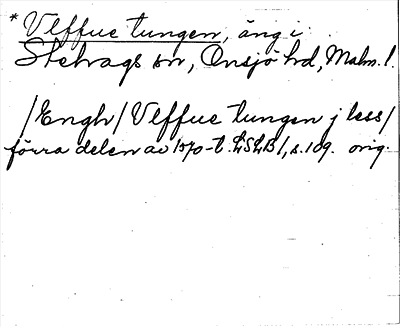 * Vlffue tungen, äng i
Stehags sn, Onsjö hd, Malm. l.
/Engh/ Vlffue tungen j less/
förra delen av 1570-t. LSLB/, s. 109. orig.